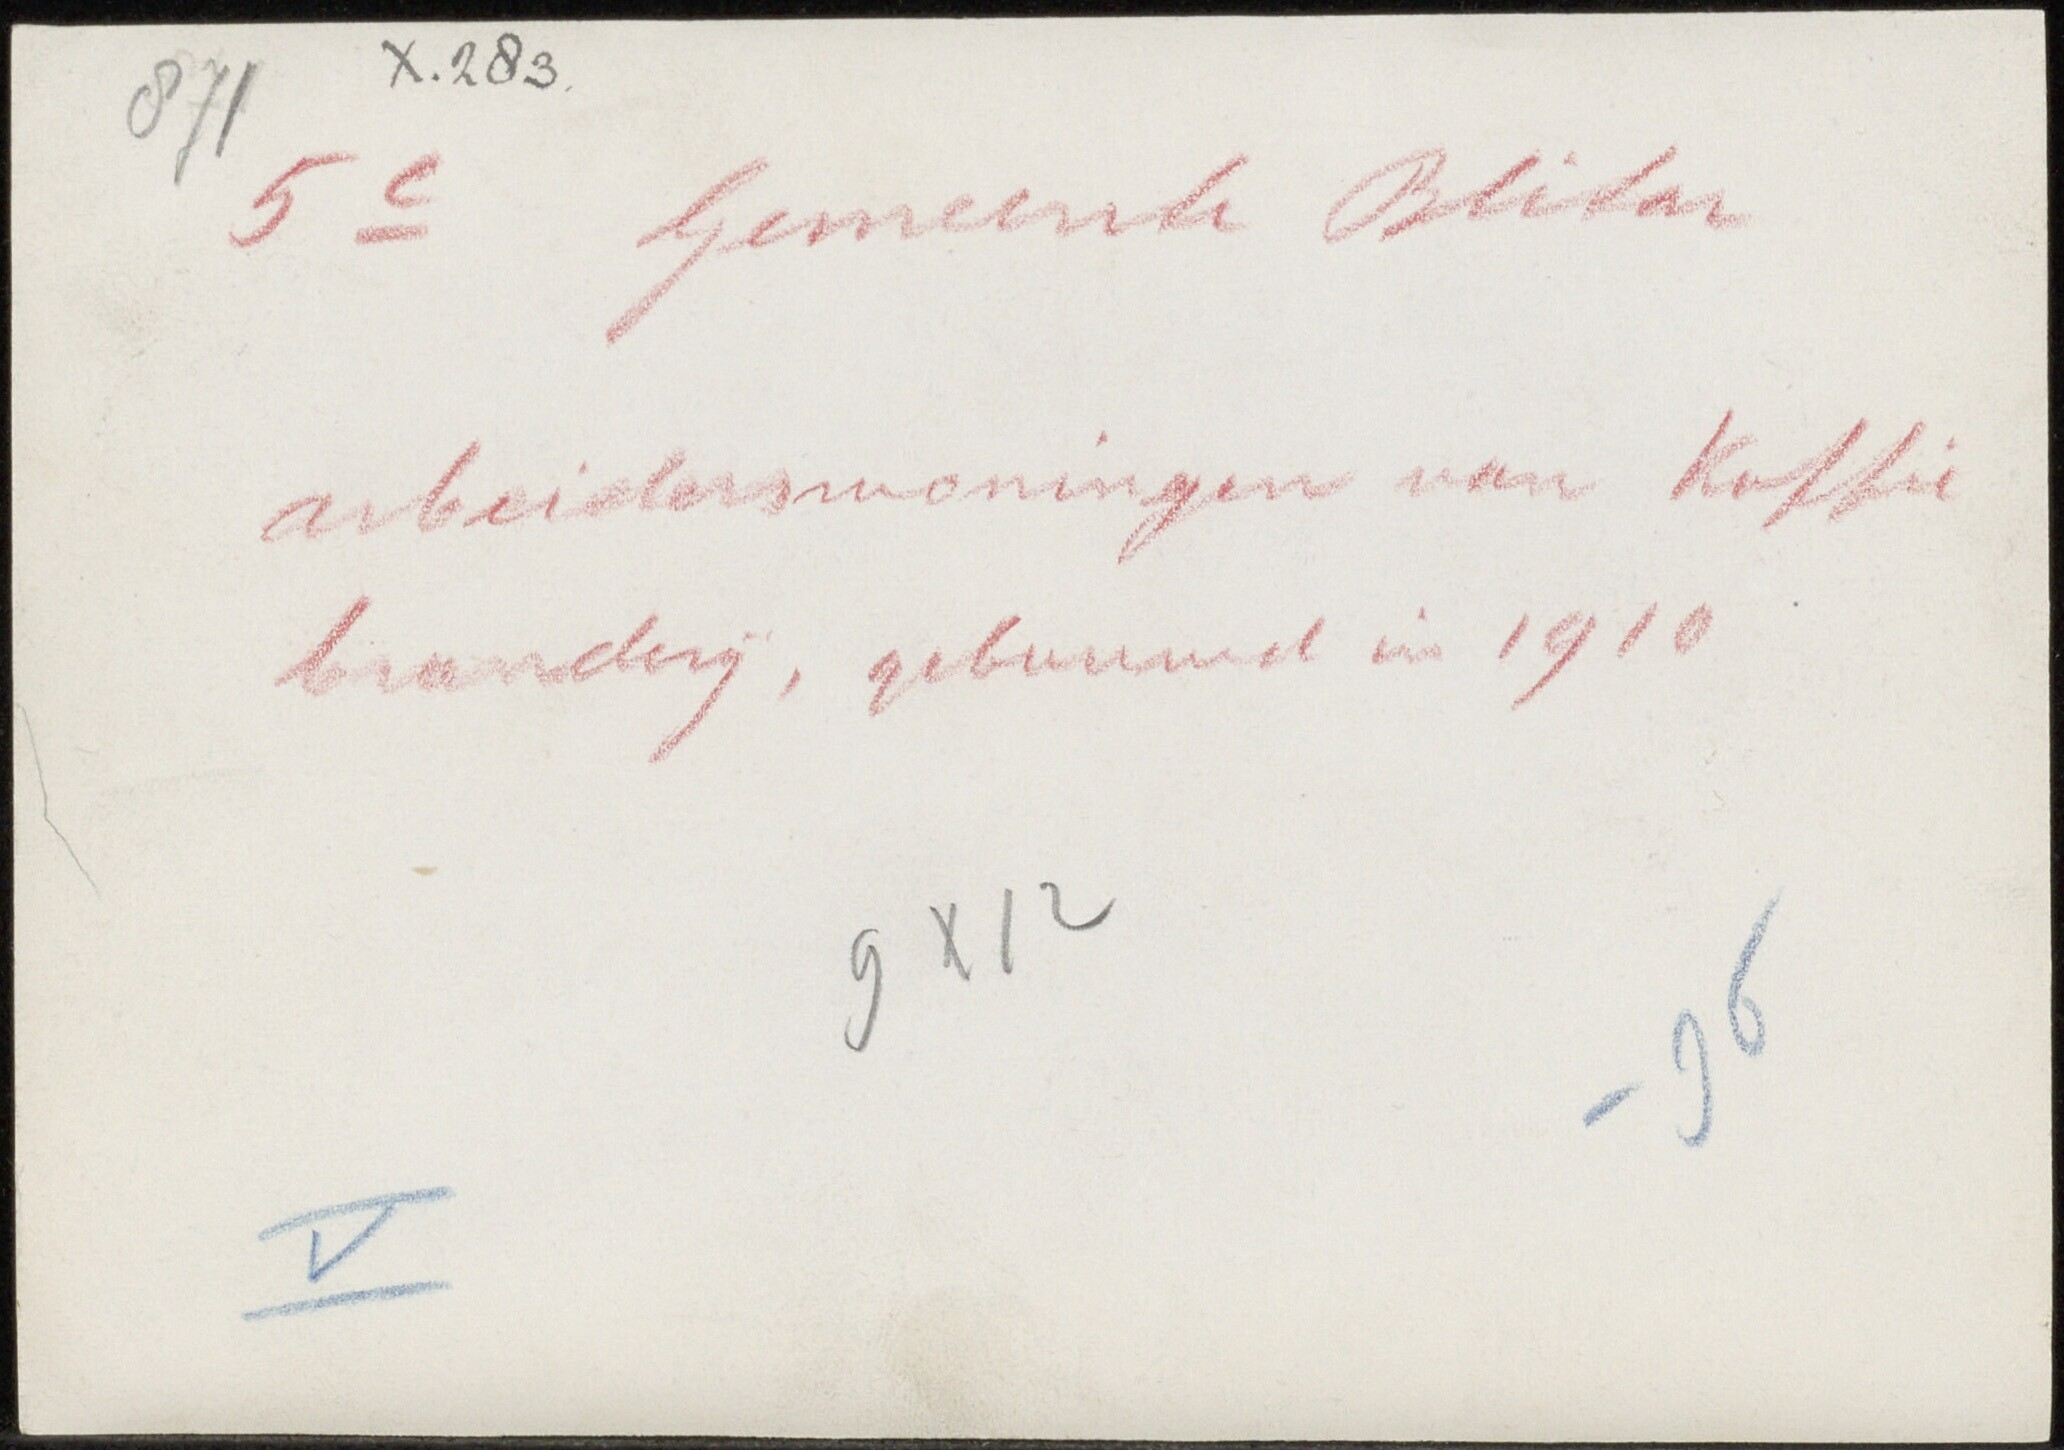 871 X.283.
5 c Gemeente Blitar
arbeiderswoningen van Koffie
branderij, gebouwd in 1910
9 x 12
- 96
V